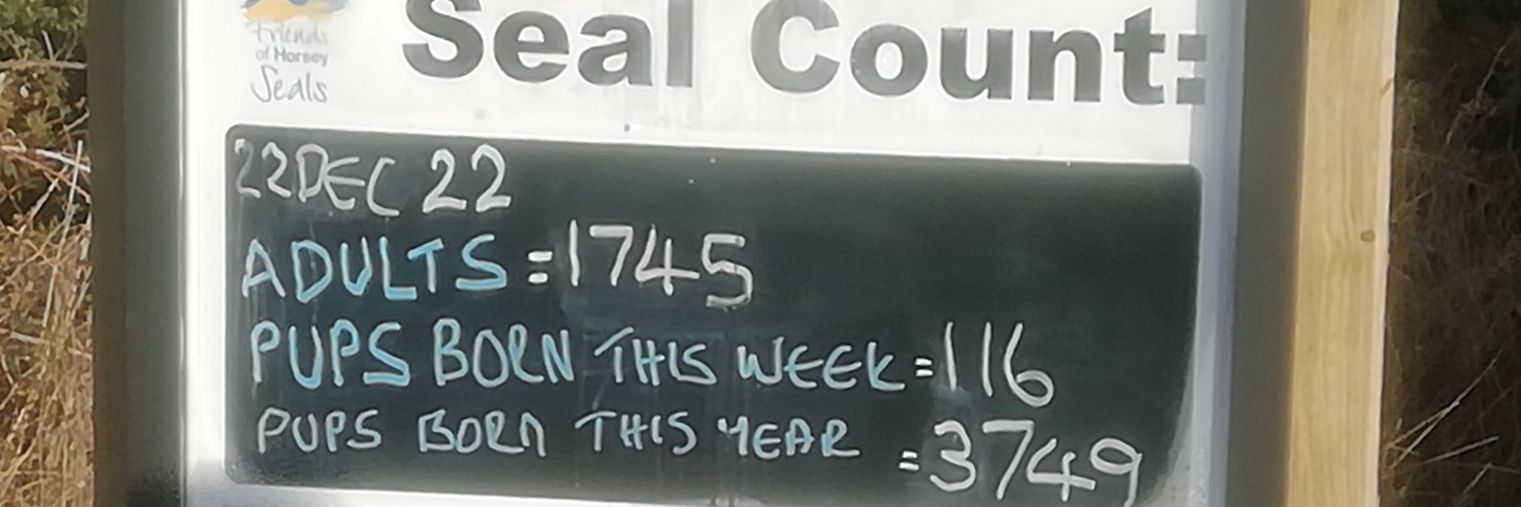 Friends
of Horsey
Seals
Seal Count:
22 DEC 22
ADULTS = 1745
PUPS BORN THIS WEEK = 116
PUPS BORN THIS YEAR = 3749